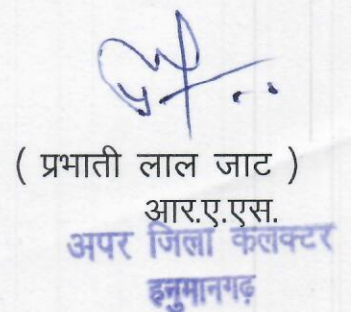 ( प्रभाती लाल जाट )
आर.ए.एस.
अपर जिला कलक्टर
हनुमानगढ़